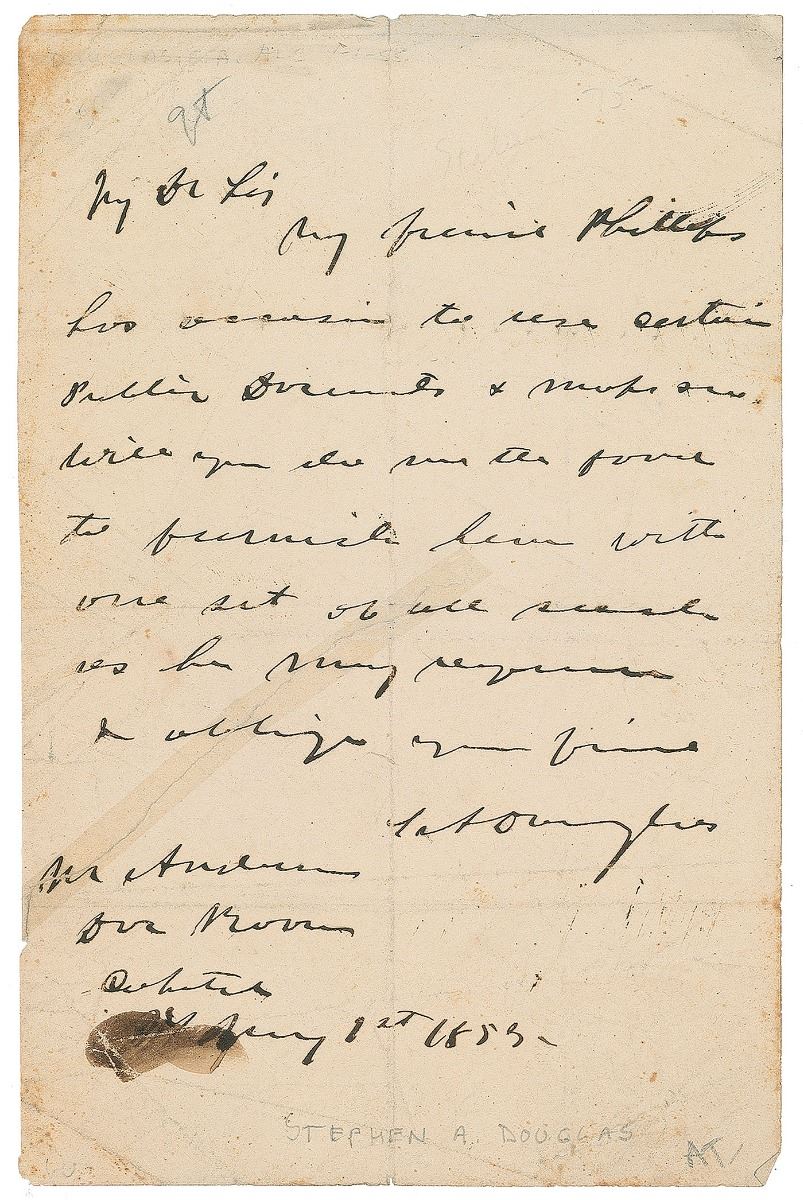 DOUGLAS, S.A. ALS
My Dr Sir
My friend Phillips
has occasion to use certain
Public Documents & Maps
Will you do me the favor
to furnish him with
one set of all such
as he may require
& oblige your friend
S A Douglas
Mr Andrews
Doc Room
Capitol
May 1st 1853
STEPHEN A. DOUGLAS